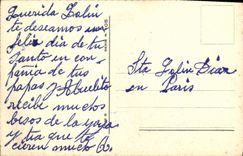 Querida Lolin
te deseamos un
feliz dia de tu
Santo en com
pañia de tus
papas y Abuelito
recibe muchos
besos de la yaya
y tia que te
quieren mucho
Sta
Diaz
en Paris